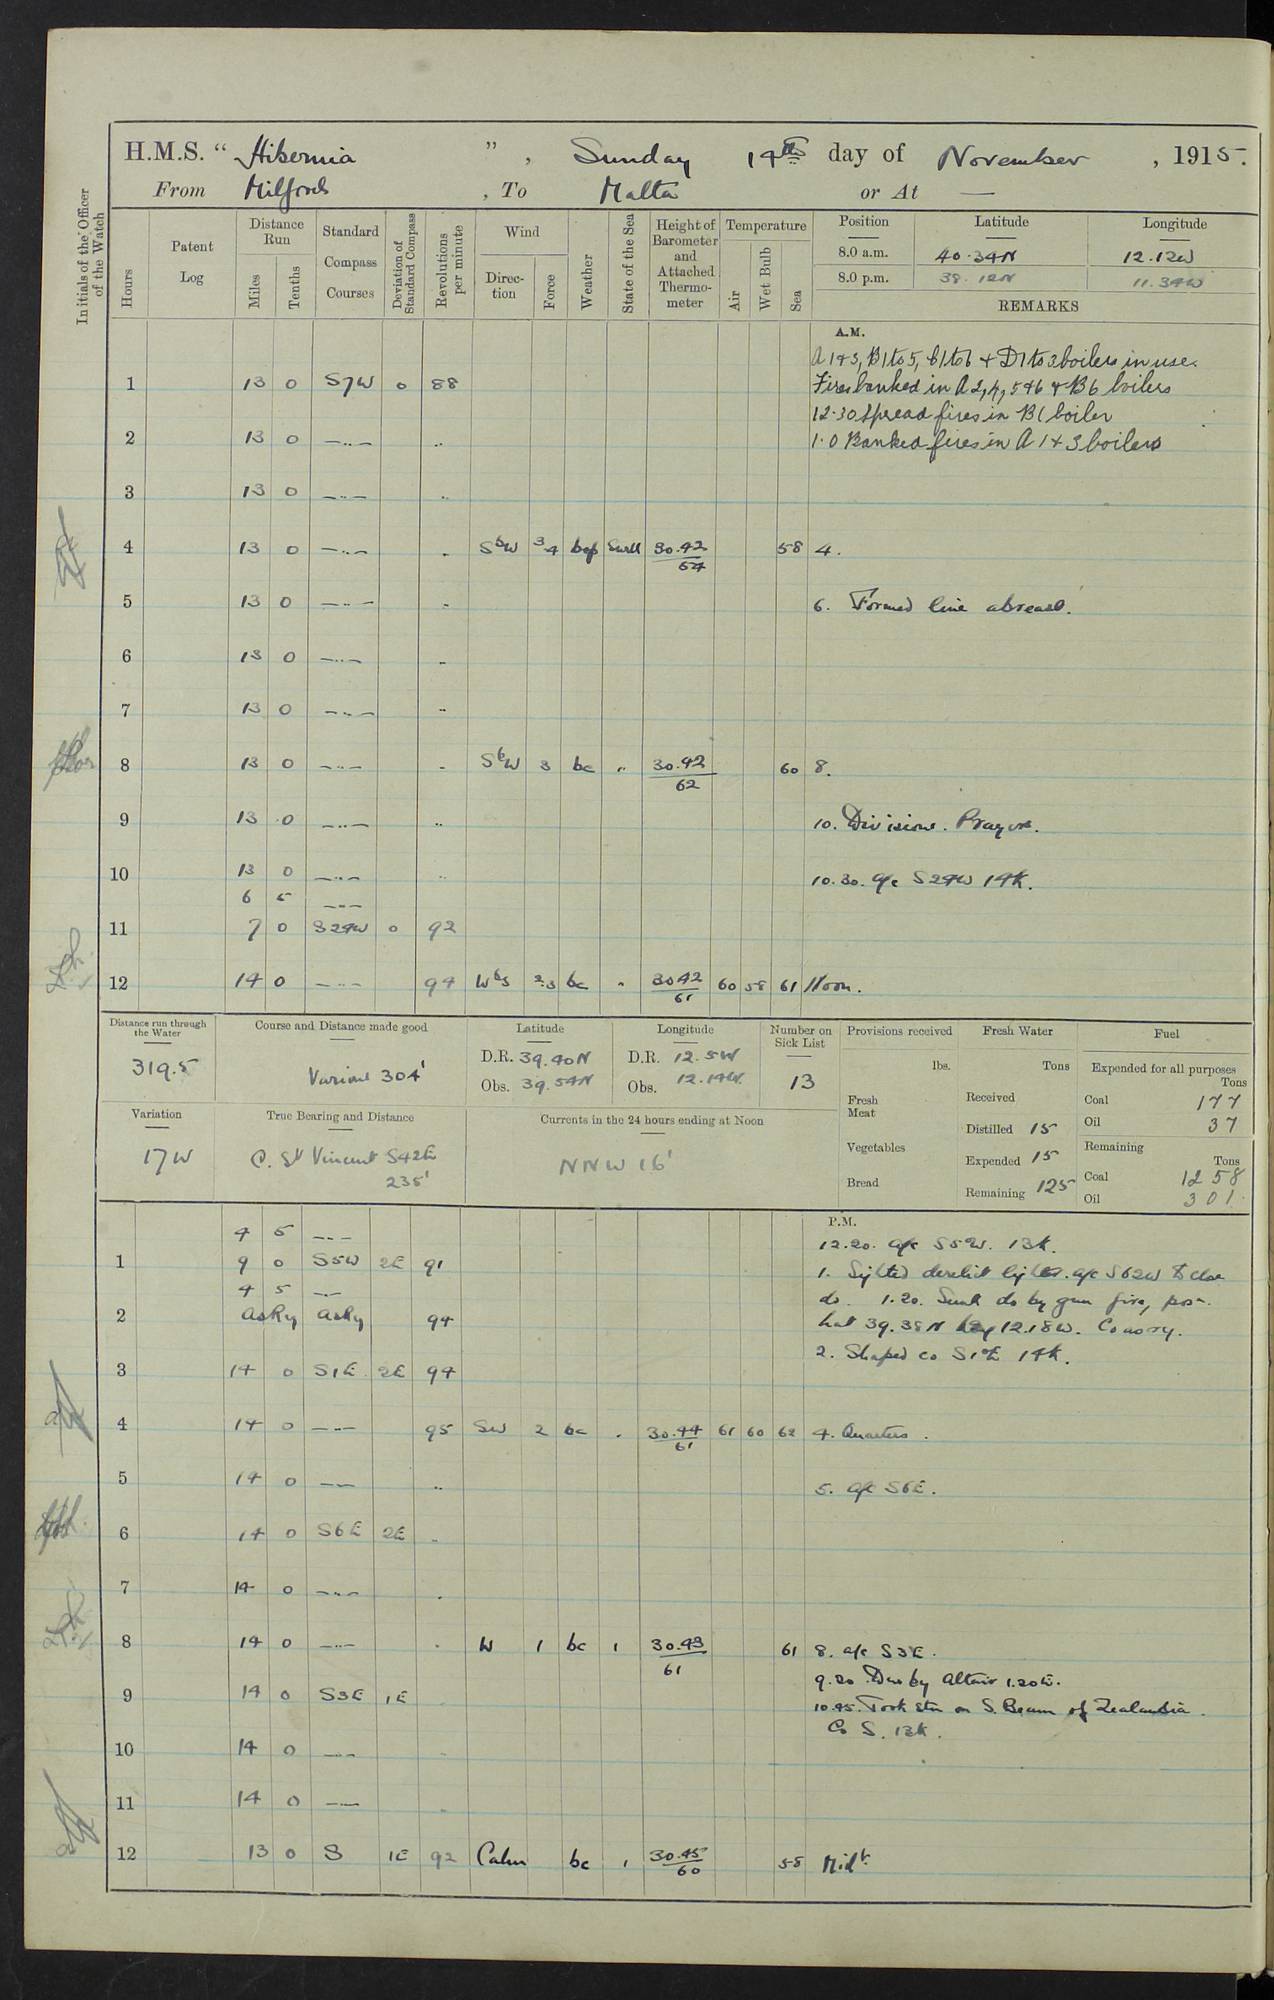 H.M.S. “ Hibernia ” , Sunday 14th day of November , 1915.
From Milford , To Malta or At —
Initials of the Officer of the Watch
Hours
Patent Log
Distance Run
Miles
Tenths
Standard Compass Courses
Deviation of Standard Compass
Revolutions per minute
Wind
Direction
Force
Weather
State of the Sea
Height of Barometer and Attached Thermometer
Temperature
Air
Wet Bulb
Sea
Position Latitude Longitude
8.0 a.m. 40.34N 12.12W
8.0 p.m. 38.12N 11.34W
REMARKS
A.M.
A 1+3, B1 to 5, C1 to 6 + D1 to 3 boilers in use.
1 13 0 S7W 0 88 Fires banked in A 2, 4, 5+6 + B6 boilers
12.30 Spread fires in B6 boiler
2 13 0 —..— .. 1.0 Banked fires in A 1+3 boilers
3 13 0 —..— ..
4 13 0 —..— .. SbW 3-4 bcp Swell 30.42 58 4.
64
5 13 0 —..— .. 6. Formed line abreast.
6 13 0 —..— ..
7 13 0 —..— ..
8 13 0 —..— .. SbW 3 bc .. 30.42 60 8.
62
9 13 0 —..— .. 10. Divisions. Prayers.
10 13 0 —..— .. 10.30. a/c S24W 14k.
6 5 —..—
11 7 0 S24W 0 92
12 14 0 —..— 94 WbS 2-3 bc .. 30.42 60 58 61 Noon.
61
Distance run through the Water
319.5
Course and Distance made good
Various 304'
Latitude
D.R. 39.40N
Obs. 39.54N
Longitude
D.R. 12.5W
Obs. 12.14W.
Number on Sick List
13
Provisions received
lbs.
Fresh Meat
Vegetables
Bread
Fresh Water
Tons
Received
Distilled 15
Expended 15
Remaining 125
Fuel
Expended for all purposes
Tons
Coal 177
Oil 37
Remaining
Tons
Coal 1258
Oil 301
Variation
17W
True Bearing and Distance
C. St Vincent S42E
235'
Currents in the 24 hours ending at Noon
NNW 16'
P.M.
4 5 —..— 12.20. a/c S5W. 13k.
1 9 0 S5W 2E 91 1. Sighted derelict lighter. a/c S62W to close
4 5 —..— do. 1.20. Sunk do by gun fire, posn.
2 asRq asRq 94 Lat 39.38N Long 12.18W. Co as rq.
2. Shaped co S1E 14k.
3 14 0 S1E 2E 94
4 14 0 —..— 95 SW 2 bc .. 30.44 61 60 62 4. Quarters.
61
5 14 0 —..— .. 5. a/c S6E.
6 14 0 S6E 2E ..
7 14 0 —..— ..
8 14 0 —..— .. W 1 bc 1 30.43 61 8. a/c S3E.
61
9.20. Dev by Altair 1.20E.
9 14 0 S3E 1E
10.45. Took stn on S. Beam of Zealandia.
Co S. 13k.
10 14 0 —..—
11 14 0 —..—
12 13 0 S 1E 92 Calm bc 1 30.45 58 Midt.
60